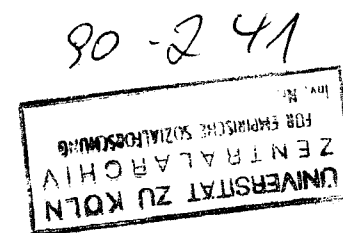 90-241
UNIVERSITÄT ZU KÖLN
ZENTRALARCHIV
FÜR EMPIRISCHE SOZIALFORSCHUNG
Inv. Nr.